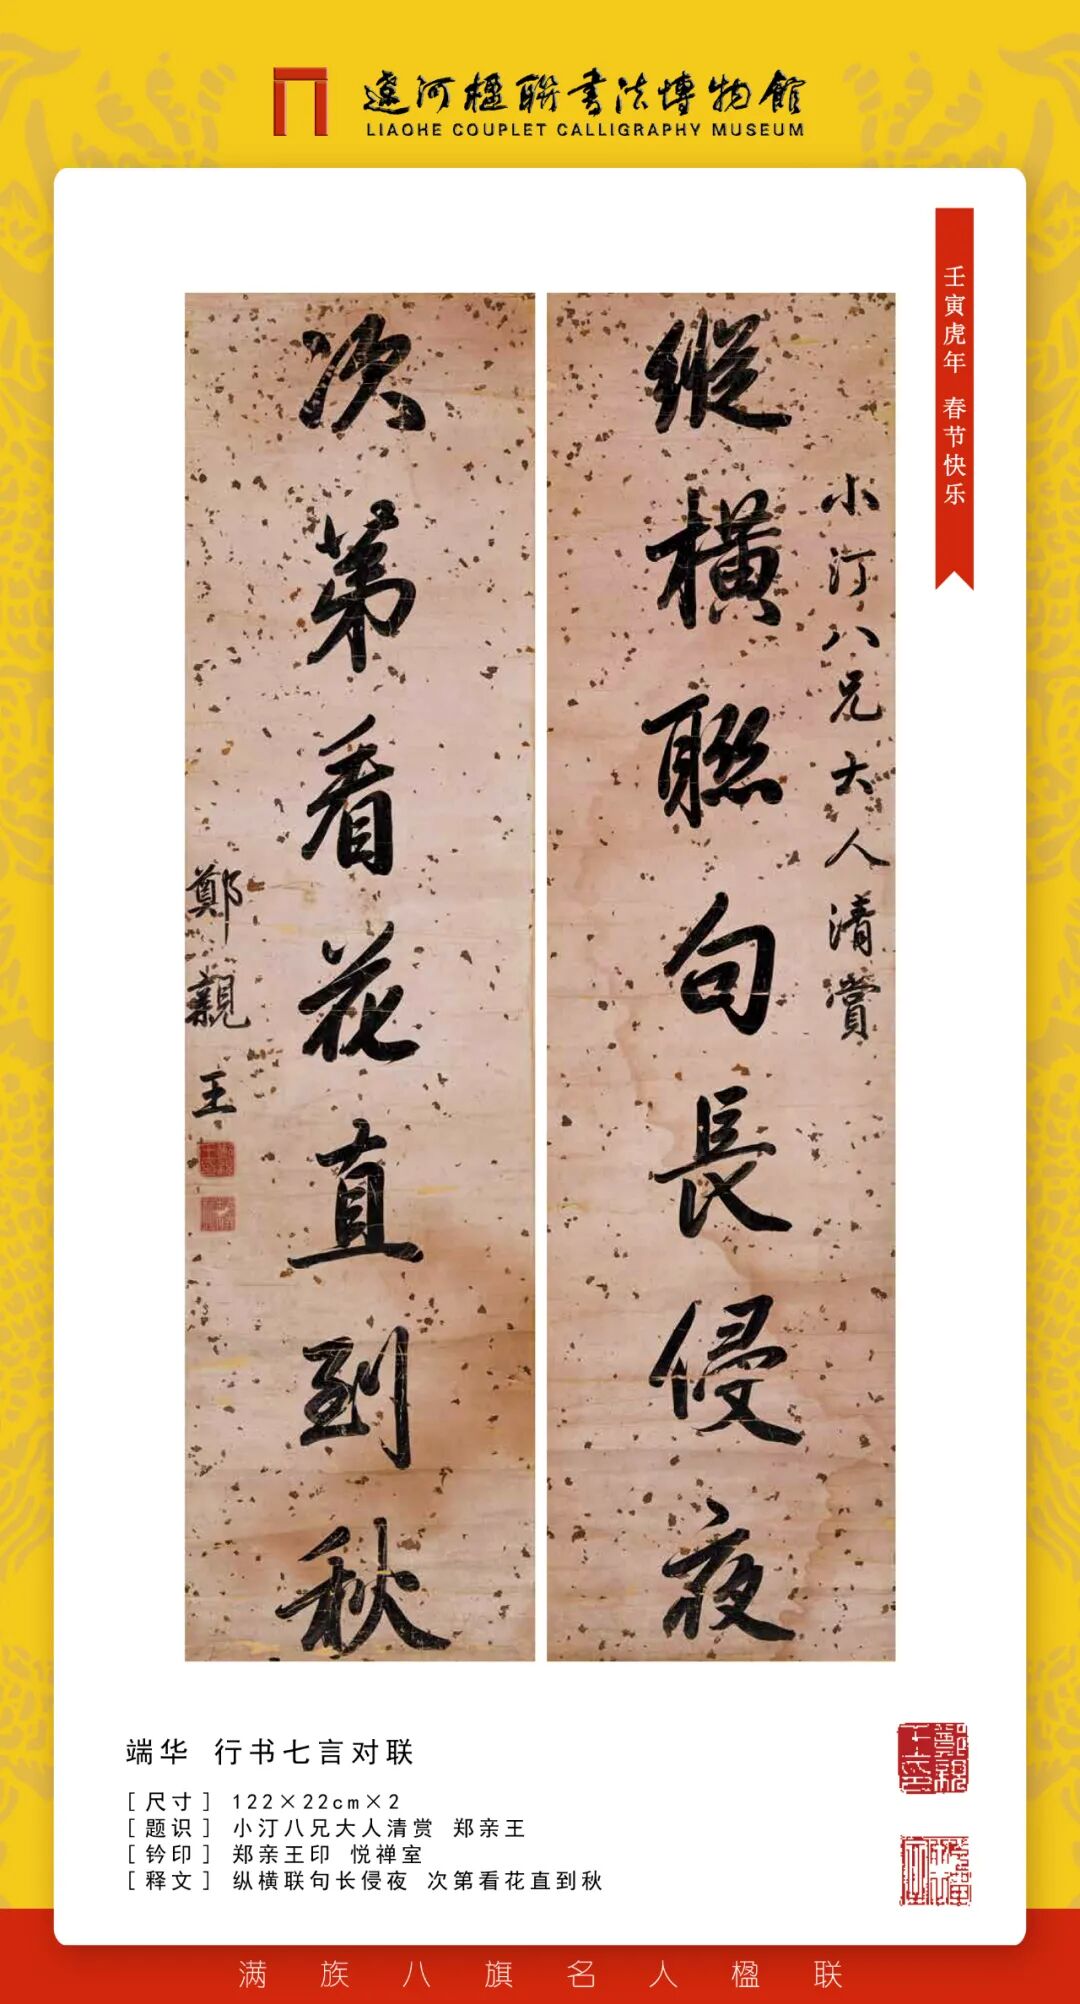 遼河楹聯書法博物館
LIAOHE COUPLET CALLIGRAPHY MUSEUM
壬寅虎年 春节快乐
小汀八兄大人清赏
縱橫聯句長侵夜
次第看花直到秋
鄭親王
端华 行书七言对联
[尺寸] 122×22cm×2
[题识] 小汀八兄大人清赏 郑亲王
[钤印] 郑亲王印 悦禅室
[释文] 纵横联句长侵夜 次第看花直到秋
满族八旗名人楹联